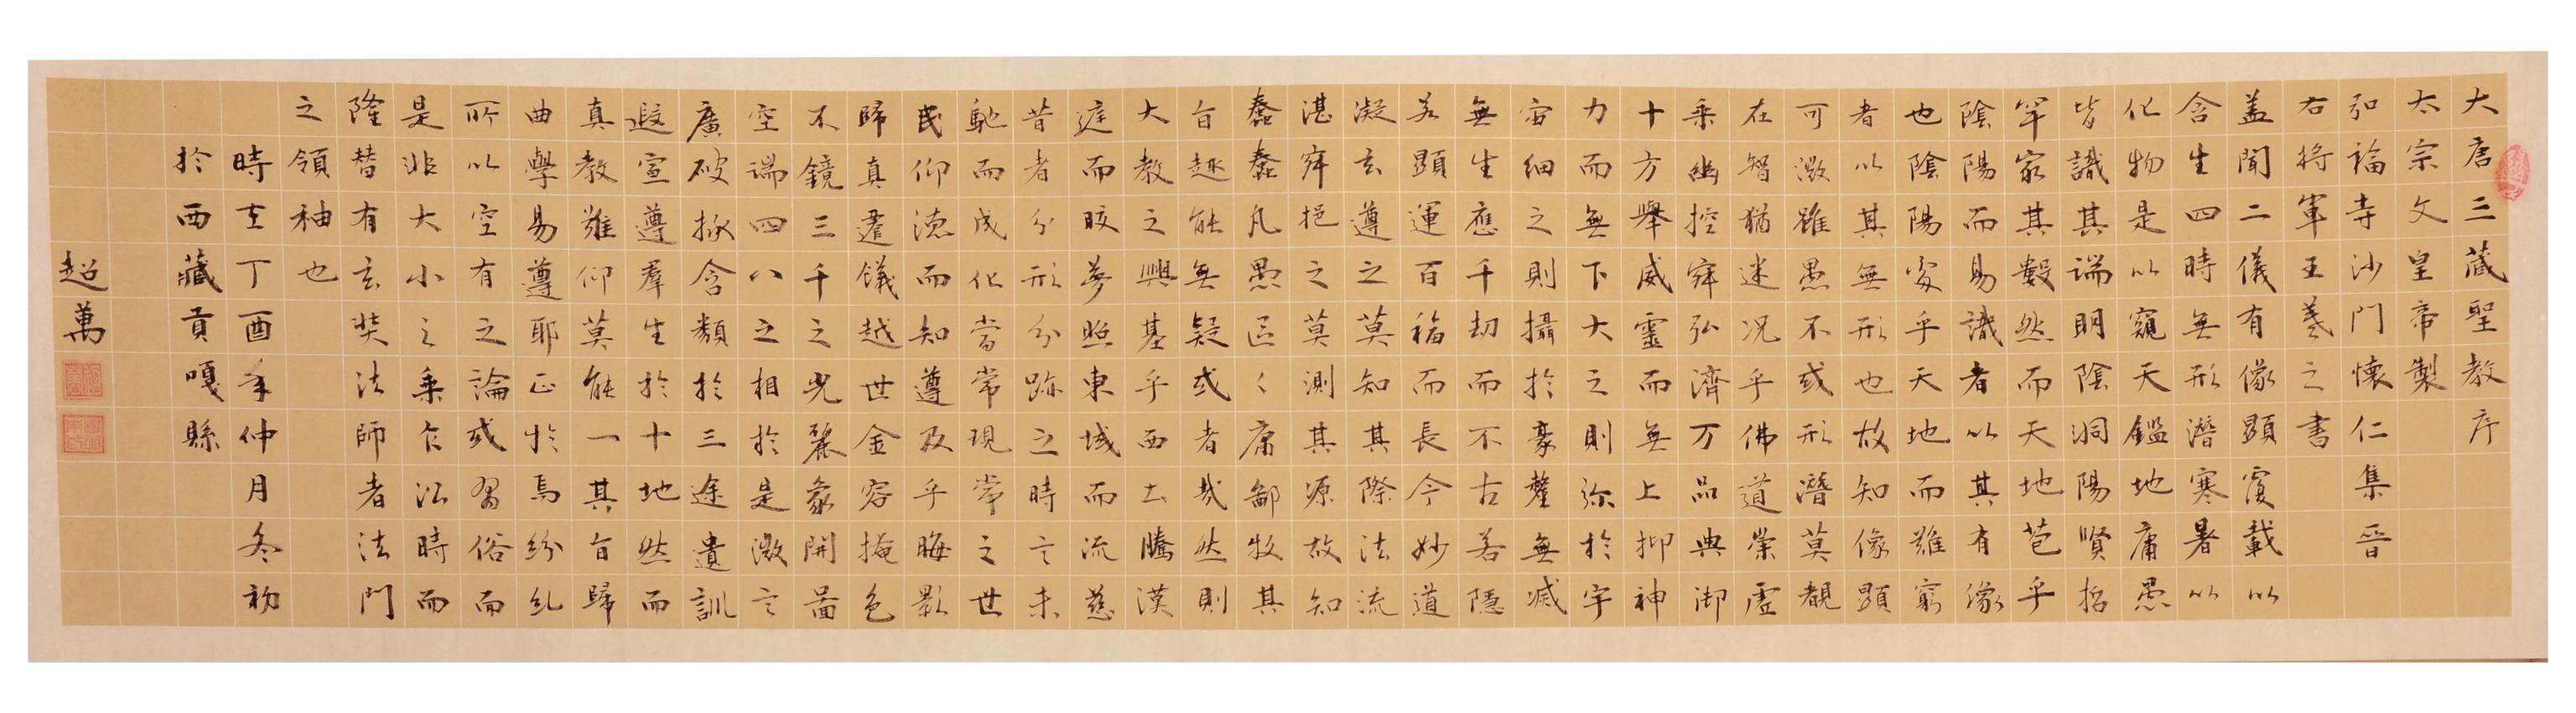 大唐三藏聖教序
太宗文皇帝製
弘福寺沙門懷仁集晉
右將軍王羲之書
盖聞二儀有像顯覆載以
含生四時無形潛寒暑以
化物是以窺天鑑地庸愚
皆識其端明陰洞陽賢哲
罕窮其數然而天地苞乎
陰陽而易識者以其有像
也陰陽處乎天地而難窮
者以其無形也故知像顯
可徵雖愚不或形潛莫覩
在智猶迷况乎佛道崇虛
乘幽控寂弘濟万品典御
十方舉威靈而無上抑神
力而無下大之則弥於宇
宙細之則攝於豪釐無滅
無生應千劫而不古若隱
若顯運百福而長今妙道
凝玄遵之莫知其際法流
湛寂挹之莫測其源故知
蠢蠢凡愚區〻庸鄙牧其
旨趣能無疑或者哉然則
大教之興基乎西土騰漢
庭而皎夢照東域而流慈
昔者分形分跡之時言未
馳而成化當常現常之世
民仰德而知遵及乎晦影
歸真遷儀越世金容掩色
不鏡三千之光麗象開圖
空端四八之相於是微言
廣破拯含類於三途遺訓
遐宣遵羣生於十地然而
真教難仰莫能一其旨歸
曲學易遵耶正於焉紛糺
所以空有之論或習俗而
是非大小之乘乍㳂時而
隆替有玄奘法師者法門
之領袖也
時在丁酉年仲月冬初
於西藏貢嘎縣
超萬